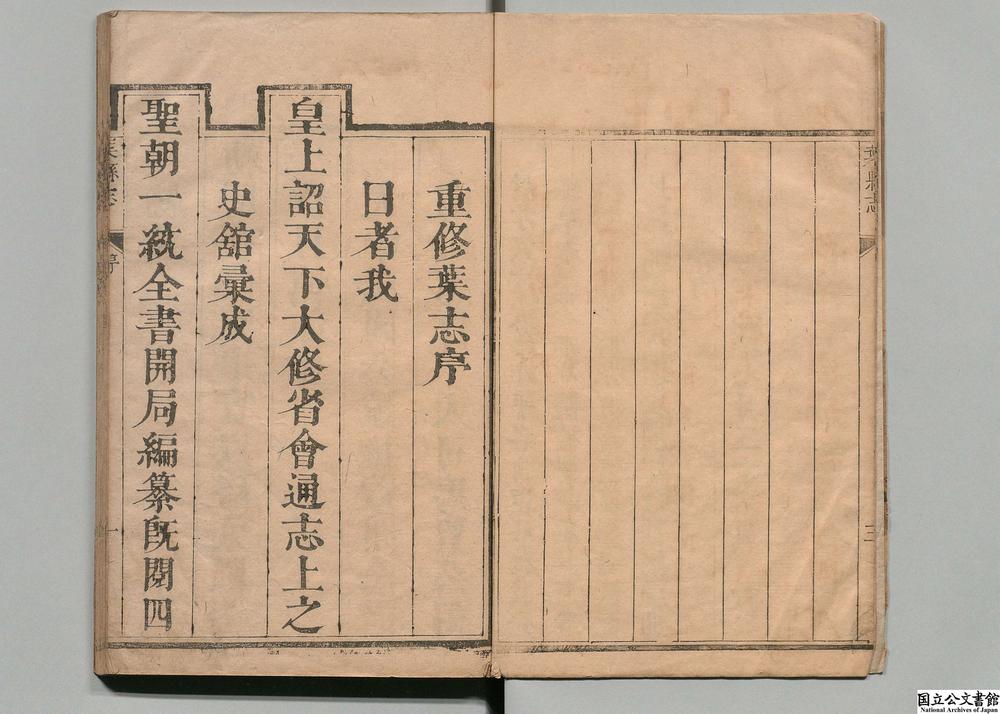 葉縣志
三
重修葉志序
日者我
皇上詔天下大修省會通志上之
史舘彙成
聖朝一統全書開局編纂旣閱四
葉縣志
序
一
国立公文書館
National Archives of Japan